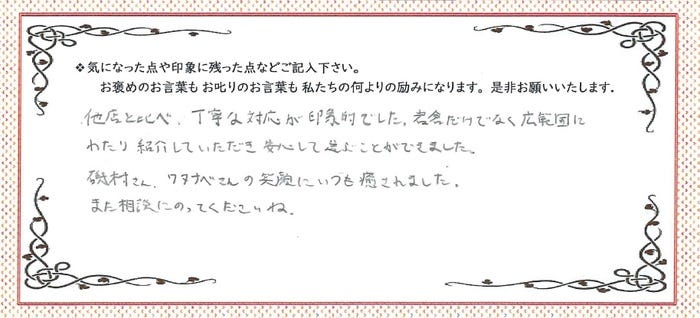 ❖気になった点や印象に残った点などご記入下さい。
お褒めのお言葉も お叱りのお言葉も 私たちの何よりの励みになります。是非お願いいたします.
他店と比べ、丁寧な対応が印象的でした。だけでなく広範囲に
わたり紹介していただき安心して選ぶことができました。
磯村さん、ワタナベさんの笑顔にいつも癒されました。
また相談にのってくださいね。